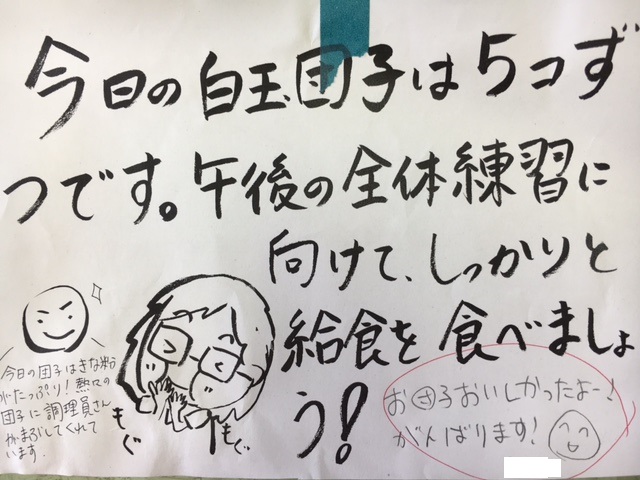 今日の白玉団子は5コず
つです。午後の全体練習に
向けて、しっかりと
給食を食べましょ
う!
今日の団子はきな粉
がたっぷり!熱々の
団子に調理員さん
がまぶしてくれて
います。
もぐ
もぐ
お団子おいしかったよー!
がんばります!